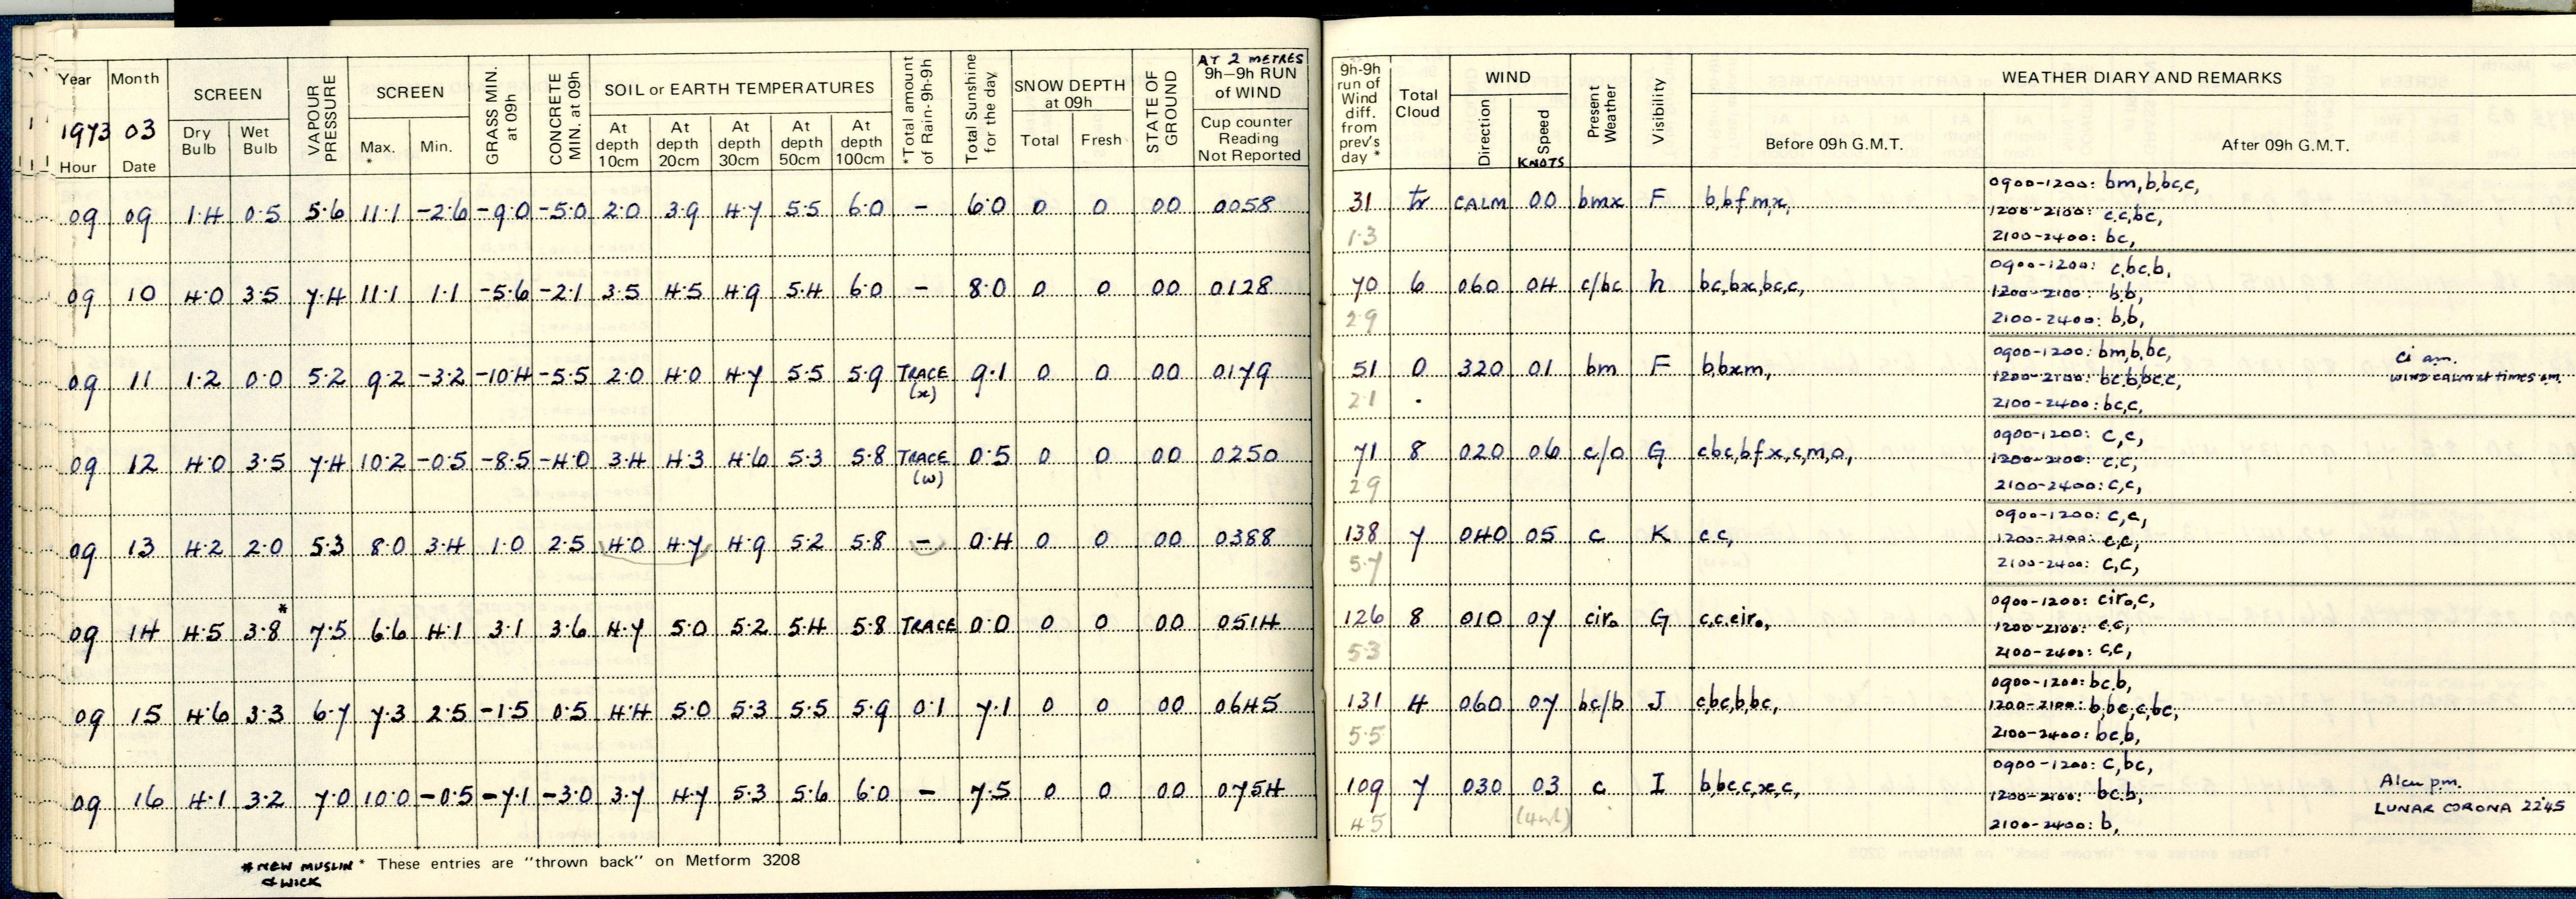 Year Month SCREEN VAPOUR PRESSURE SCREEN GRASS MIN. at 09h CONCRETE MIN. at 09h SOIL or EARTH TEMPERATURES *Total amount of Rain-9h-9h Total Sunshine for the day SNOW DEPTH at 09h STATE OF GROUND AT 2 METRES 9h-9h RUN of WIND
1973 03 Dry Bulb Wet Bulb Max. * Min. At depth 10cm At depth 20cm At depth 30cm At depth 50cm At depth 100cm Total Fresh Cup counter Reading Not Reported
Hour Date
09 09 1.4 0.5 5.6 11.1 -2.6 -9.0 -5.0 2.0 3.9 4.7 5.5 6.0 - 6.0 0 0 00 0058
09 10 4.0 3.5 7.4 11.1 1.1 -5.6 -2.1 3.5 4.5 4.9 5.4 6.0 - 8.0 0 0 00 0128
09 11 1.2 0.0 5.2 9.2 -3.2 -10.4 -5.5 2.0 4.0 4.7 5.5 5.9 TRACE (x) 9.1 0 0 00 0179
09 12 4.0 3.5 7.4 10.2 -0.5 -8.5 -4.0 3.4 4.3 4.6 5.3 5.8 TRACE (w) 0.5 0 0 00 0250
09 13 4.2 2.0 5.3 8.0 3.4 1.0 2.5 4.0 4.7 4.9 5.2 5.8 - 0.4 0 0 00 0388
09 14 4.5 3.8* 7.5 6.6 4.1 3.1 3.6 4.7 5.0 5.2 5.4 5.8 TRACE 0.0 0 0 00 0514
09 15 4.6 3.3 6.7 7.3 2.5 -1.5 0.5 4.4 5.0 5.3 5.5 5.9 0.1 7.1 0 0 00 0645
09 16 4.1 3.2 7.0 10.0 -0.5 -7.1 -3.0 3.7 4.7 5.3 5.6 6.0 - 7.5 0 0 00 0754
* These entries are "thrown back" on Metform 3208
* NEW MUSLIN
& WICK
9h-9h run of Wind diff. from prev's day * Total Cloud WIND Present Weather Visibility WEATHER DIARY AND REMARKS
Direction Speed KNOTS Before 09h G.M.T. After 09h G.M.T.
0900-1200: bm,b,bc,c,
31 tr CALM 00 bmx F b,bfm,x,
1200-2100: c,c,bc,
1.3
2100-2400: bc,
0900-1200: c,bc,b,
70 6 060 04 c/bc h bc,bx,bc,c,
1200-2100: b,b,
2.9
2100-2400: b,b,
0900-1200: bm,b,bc, Ci am.
51 0 320 01 bm F b,bxm,
1200-2100: bc,b,bc,c, WIND CALM at times am.
2.1
2100-2400: bc,c,
0900-1200: c,c,
71 8 020 06 c/o G c,bc,bfx,c,m,o,
1200-2100: c,c,
2.9
2100-2400: c,c,
0900-1200: c,c,
138 7 040 05 c K c,c,
1200-2100: c,c,
5.7
2100-2400: c,c,
0900-1200: cir₀,c,
126 8 010 07 cir₀ G c,c,cir₀,
1200-2100: c,c,
5.3
2100-2400: c,c,
0900-1200: bc,b,
131 4 060 07 bc/b J c,bc,b,bc,
1200-2100: b,bc,c,bc,
5.5
2100-2400: bc,b,
0900-1200: c,bc, Alcu p.m.
109 7 030 03 c I b,bc,c,x,c,
1200-2100: bc,b, LUNAR CORONA 22.45
4.5
2100-2400: b,